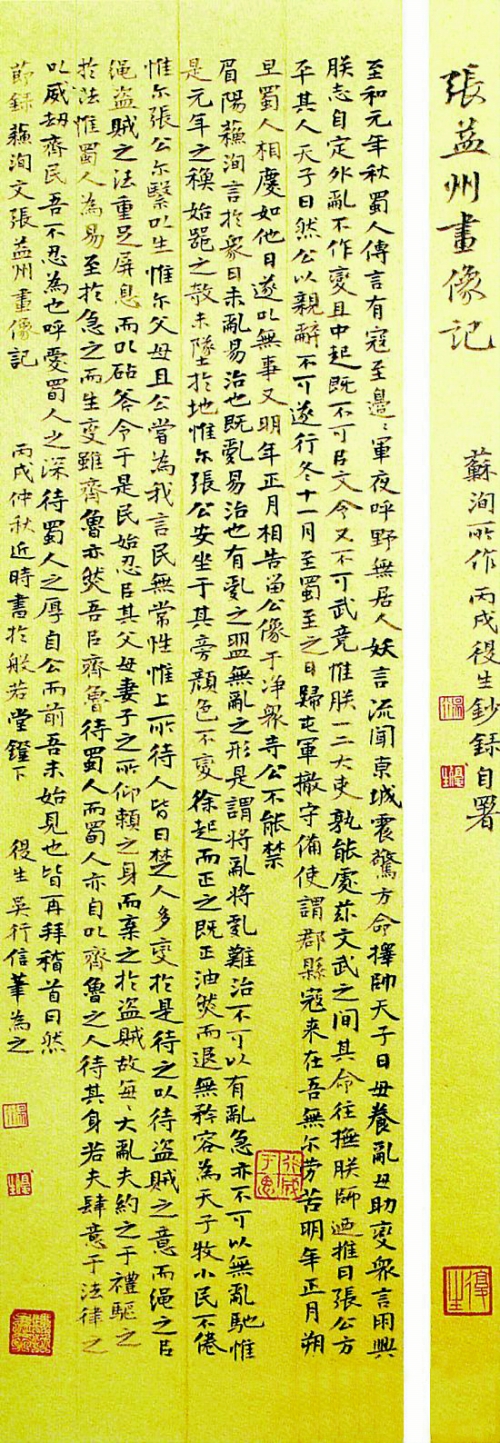 張益州畫像記
蘇洵所作 丙戌復生鈔錄自署
至和元年秋蜀人傳言有寇至邊〻軍夜呼野無居人妖言流聞京城震驚方命擇帥天子曰毋養亂毋助變眾言朋興
朕志自定外亂不作變且中起既不可以文令又不可武竞惟朕一二大吏孰能處茲文武之間其命往撫朕師廼推曰張公方
平其人天子曰然公以親辭不可遂行冬十一月至蜀至之日歸屯軍撤守備使謂郡縣寇來在吾無尔勞苦明年正月朔
旦蜀人相慶如他日遂以無事又明年正月相告留公像于净眾寺公不能禁
眉陽蘇洵言於眾曰未亂易治也既亂易治也有亂之萌無亂之形是謂將亂將亂難治不可以有亂急亦不可以無亂馳惟
是元年之穐始器之欹未墜於地惟尔張公安坐于其旁顏色不變徐起而正之既正油然而退無矜容為天子牧小民不倦
惟尔張公尔繄以生惟尔父母且公嘗為我言民無常性惟上所待人皆曰楚人多變於是待之以待盜賊之意而绳之以
绳盜賊之法重足屏息而以砧斧令于是民始忍以其父母妻子之所仰賴之身而棄之於盜賊故每〻大亂夫約之于禮驅之
於法惟蜀人為易至於急之而生變雖齊魯亦然吾以齊魯待蜀人而蜀人亦自以齊魯之人待其身若夫肆意于法律之
以威劫齊民吾不忍為也呼愛蜀人之深待蜀人之厚自公而前吾未始見也皆再拜稽首曰然
節錄蘇洵文張益州畫像記 丙戌仲秋近時書於般若堂鐙下 復生吳行信筆為之
復生